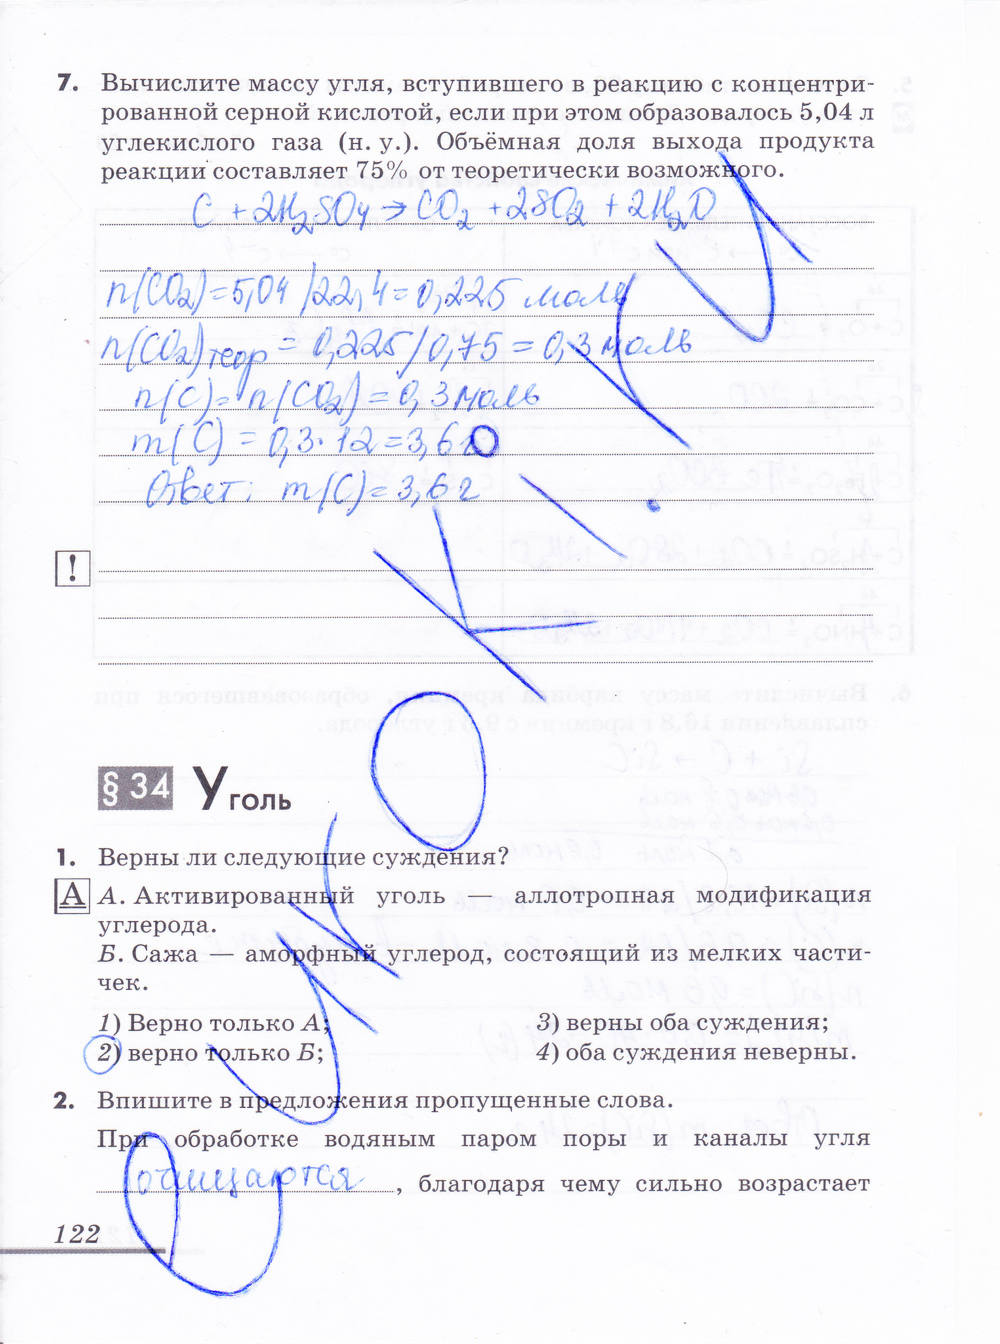 7. Вычислите массу угля, вступившего в реакцию с концентри-
рованной серной кислотой, если при этом образовалось 5,04 л
углекислого газа (н. у.). Объёмная доля выхода продукта
реакции составляет 75% от теоретически возможного.
C + 2H₂SO₄ → CO₂ + 2SO₂ + 2H₂O
n(CO₂) = 5,04 / 22,4 = 0,225 моль
n(CO₂)теор = 0,225 / 0,75 = 0,3 моль
n(C) = n(CO₂) = 0,3 моль
m(C) = 0,3 · 12 = 3,6 г
Ответ: m(C) = 3,6 г
!
§ 34 Уголь
1. Верны ли следующие суждения?
А А. Активированный уголь — аллотропная модификация
углерода.
Б. Сажа — аморфный углерод, состоящий из мелких части-
чек.
1) Верно только А; 3) верны оба суждения;
2) верно только Б; 4) оба суждения неверны.
2. Впишите в предложения пропущенные слова.
При обработке водяным паром поры и каналы угля
очищаются, благодаря чему сильно возрастает
122